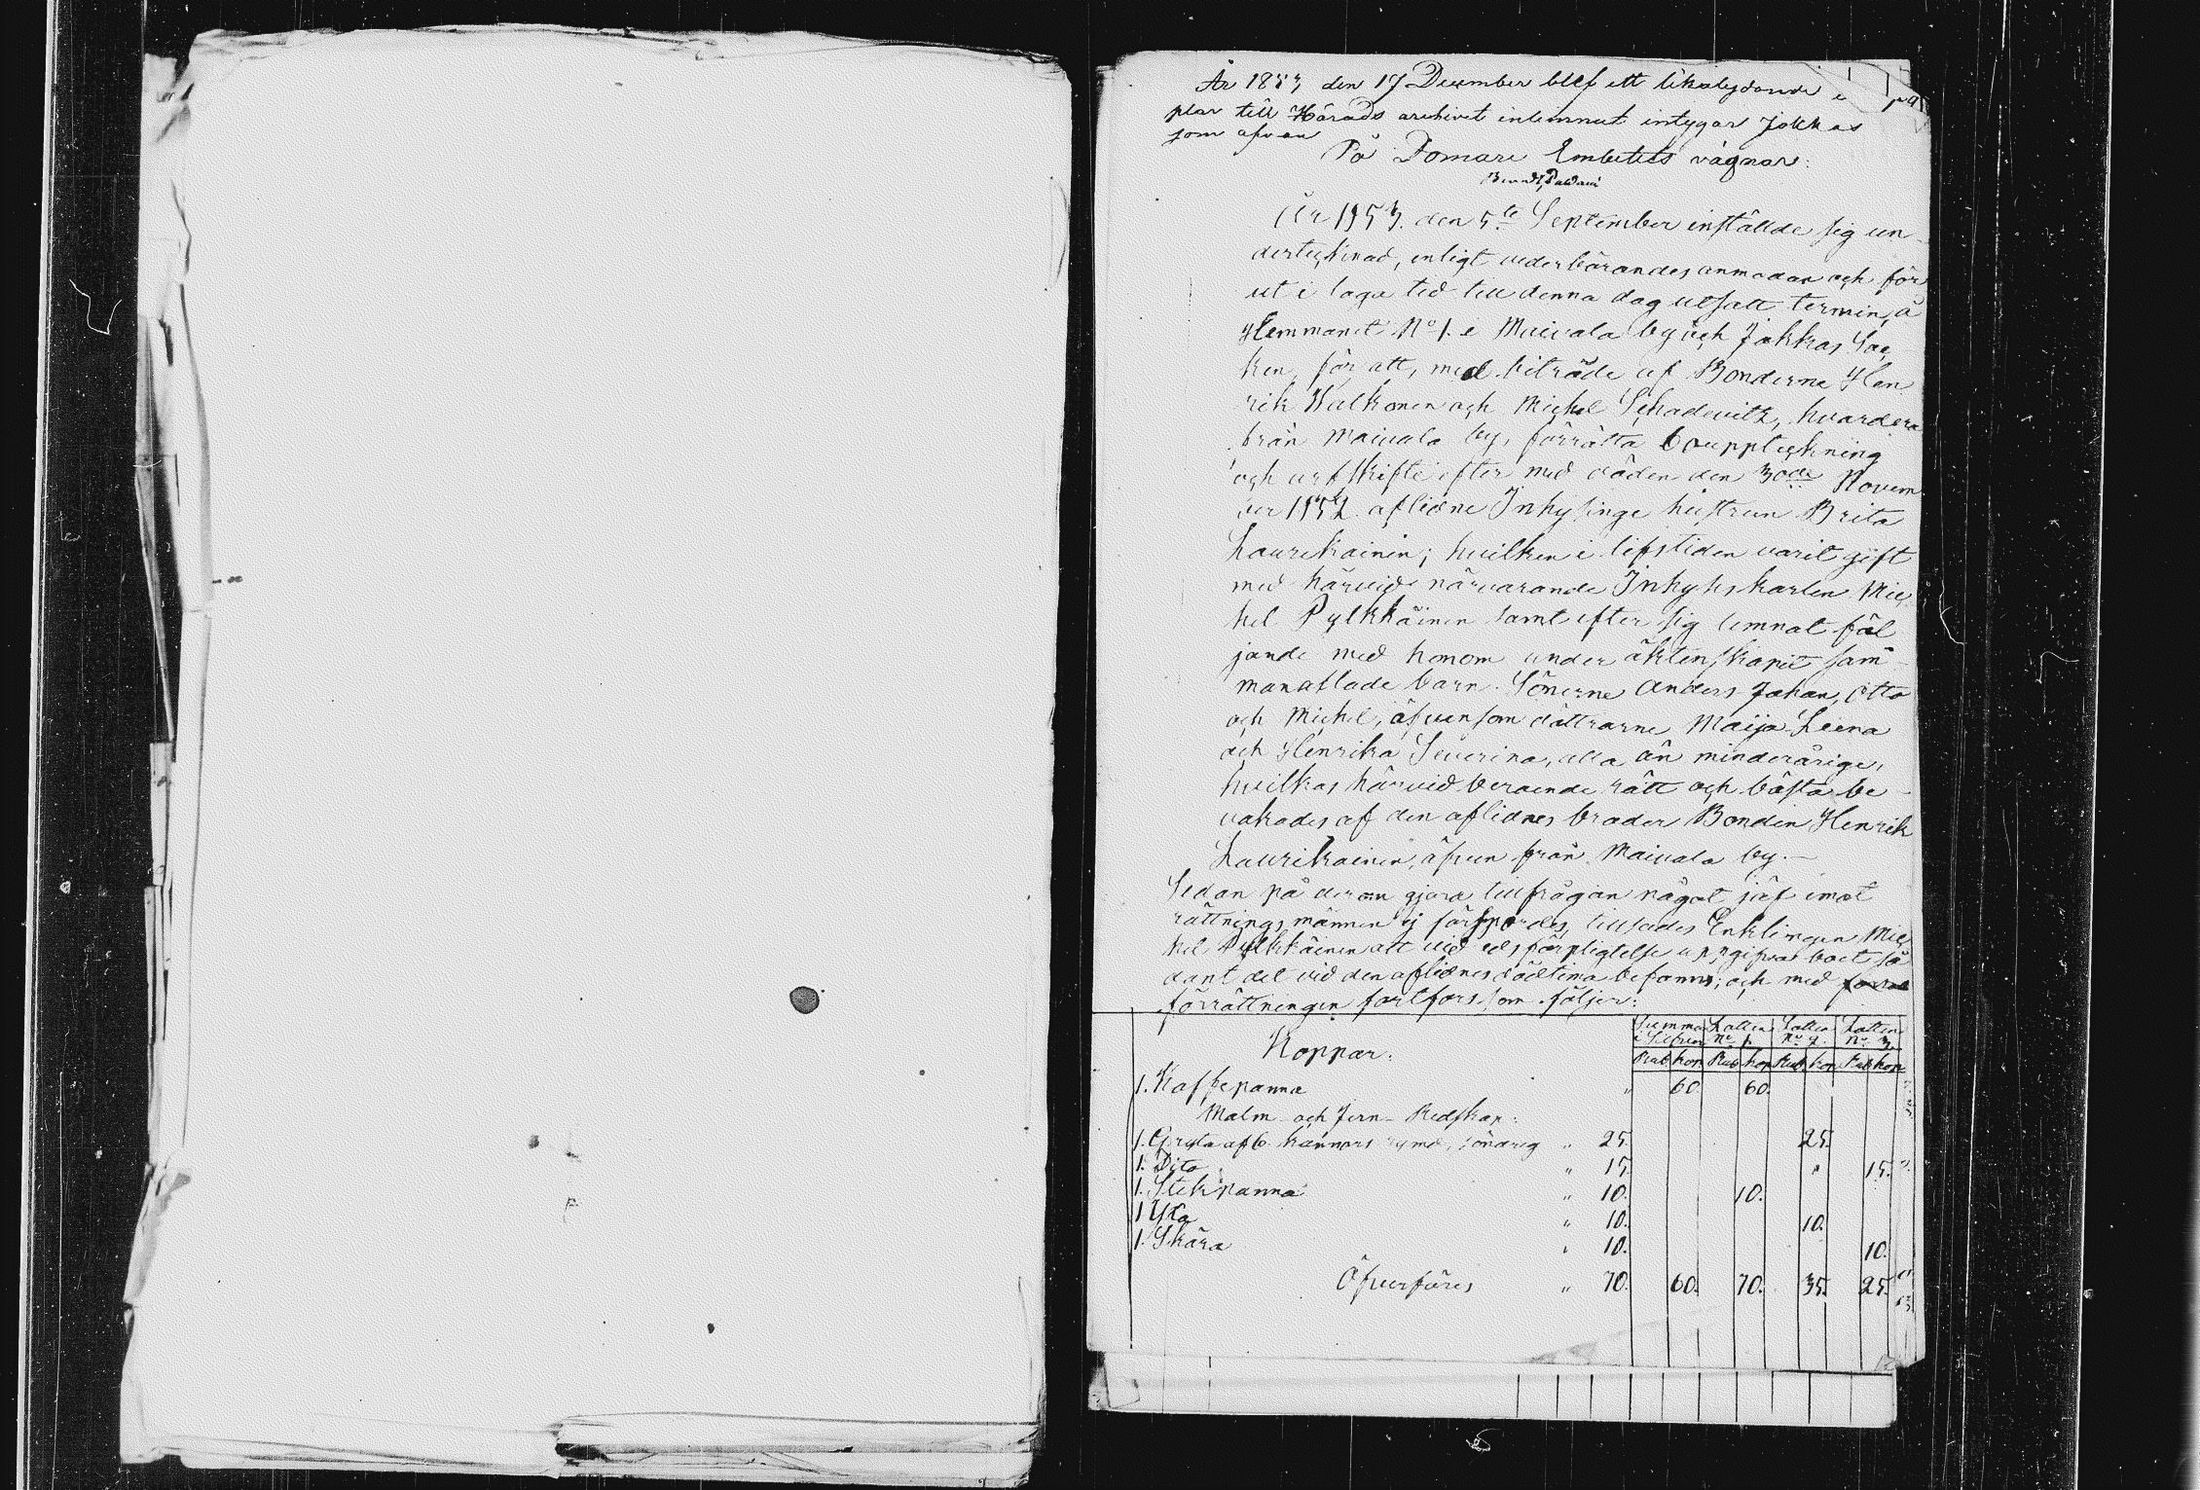 År 1853 den 17 December blef ett likalydande
plar till Härads archivet inlemnat intygar Jokkas
som ofvan
På Domare Embetets vägnar:
År 1853. den 5te September instälde sig un-
dertecknad, enligt vederbörandes anmodan och för
ut i laga tid till denna dag utsatt termin, å
Hemmanet No 1. i Maivala by och Jokkas Soc
ken, för att, med biträde af Bönderne Hen
rik Valkonen och Michel Schadevitz, hvardera
från Maivala by, förrätta bouppteckning
och arfskifte efter med döden den 30de Novem
ber 1852 aflidne Inhysinge hustrun Brita
Laurikainen; hvilken i lifstiden varit gift
med härvid närvarande Inhyhskarlen Mic
hel Pylkkäinen samt efter sig lemnat föl
jande med honom under äktenskapet sam-
manaflade barn. Sönerne Anders Johan, Otto
och Michel, äfvensom döttrarne Maija Leena
och Henrika Severina, alla än minderårige,
hvilkas härvid beroende rätt och bästa be-
vakades af den aflidnes broder Bonden Henrik
Laurikainen, äfven från Maivala by.—
Sedan på derom gjord tillfrågan något jäf emot
rättningsmännen ej förspordes, tillsades Enklingen Mic
hel Pylkkäinen att vid edsförpligtelse uppgifva boet så
dant det vid den aflidnes dödtima befanns; och med
förrättningen fortfors som följer:
Summa Lotten Lotten Lotten
i Silfver No 1. No 2. No 3.
Koppar.
Rub Kop Rub Kop Rub Kop Rub Kop
1. Kaffepanna " 60. 60.
Malm- och Jern- Redskap:
1. Gryta af 6. kannors rymd, söndrig " 25. 25.
1. Dito " 15. 15.
1. Stekpanna " 10. 10.
1 Yxa " 10. 10.
1. Skära " 10. 10.
Öfverföres " 70. 60. 70. 35. 25.